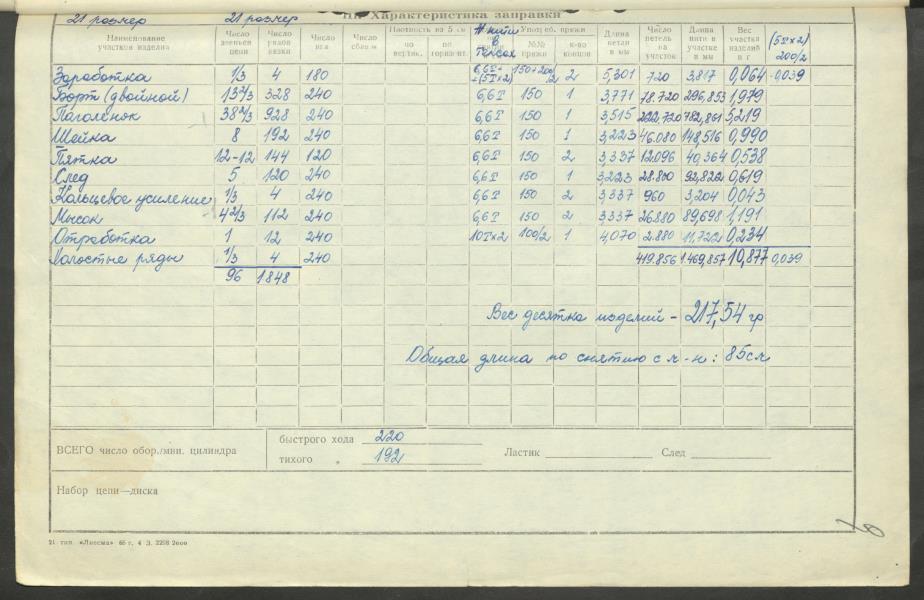 21 размер 21 размер III. Характеристика заправки
Наименование участков изделия Число звеньев цепи Число рядов вязки Число игл Число сбав м Плотность на 5 см по вертик. по горизонт. № нити в тексах Употреб. пряжи №№ пряжи к-во концов Длина петли в мм Число петель на участок Длина нити в участке в мм Вес участка изделия в г (5Тх2) 200/2
Заработка 1/3 4 180 6,6Т+ +(5Тх2) 150+200/2 2 5,301 720 3,817 0,064 0,039
Борт (двойной) 13 2/3 328 240 6,6Т 150 1 3,771 78.720 296,853 1,979
Паголенок 38 2/3 928 240 6,6Т 150 1 3,515 222,720 782,861 5,219
Шейка 8 192 240 6,6Т 150 1 3,223 46.080 148,516 0,990
Пятка 12-12 144 120 6,6Т 150 2 3,337 12.096 40,364 0,538
След 5 120 240 6,6Т 150 1 3,223 28.800 92,822 0,619
Кольцевое усиление 1/3 4 240 6,6Т 150 2 3,337 960 3,204 0,043
Мысок 4 2/3 112 240 6,6Т 150 2 3337 26.880 89,698 1,191
Отработка 1 12 240 10Тх2 100/2 1 4,070 2.880 11,722 0,234
Холостые ряды 1/3 4 240 419.856 1.469,857 10,877 0,039
96 1848
Вес десятка изделий - 217,54 гр
Общая длина по снятию с м-н: 85см
ВСЕГО число обор./мин. цилиндра быстрого хода 220
тихого „ 192 Ластик След
Набор цепи—диска
21 тип. «Лиесма» 65 г. 4 З. 2298 2000